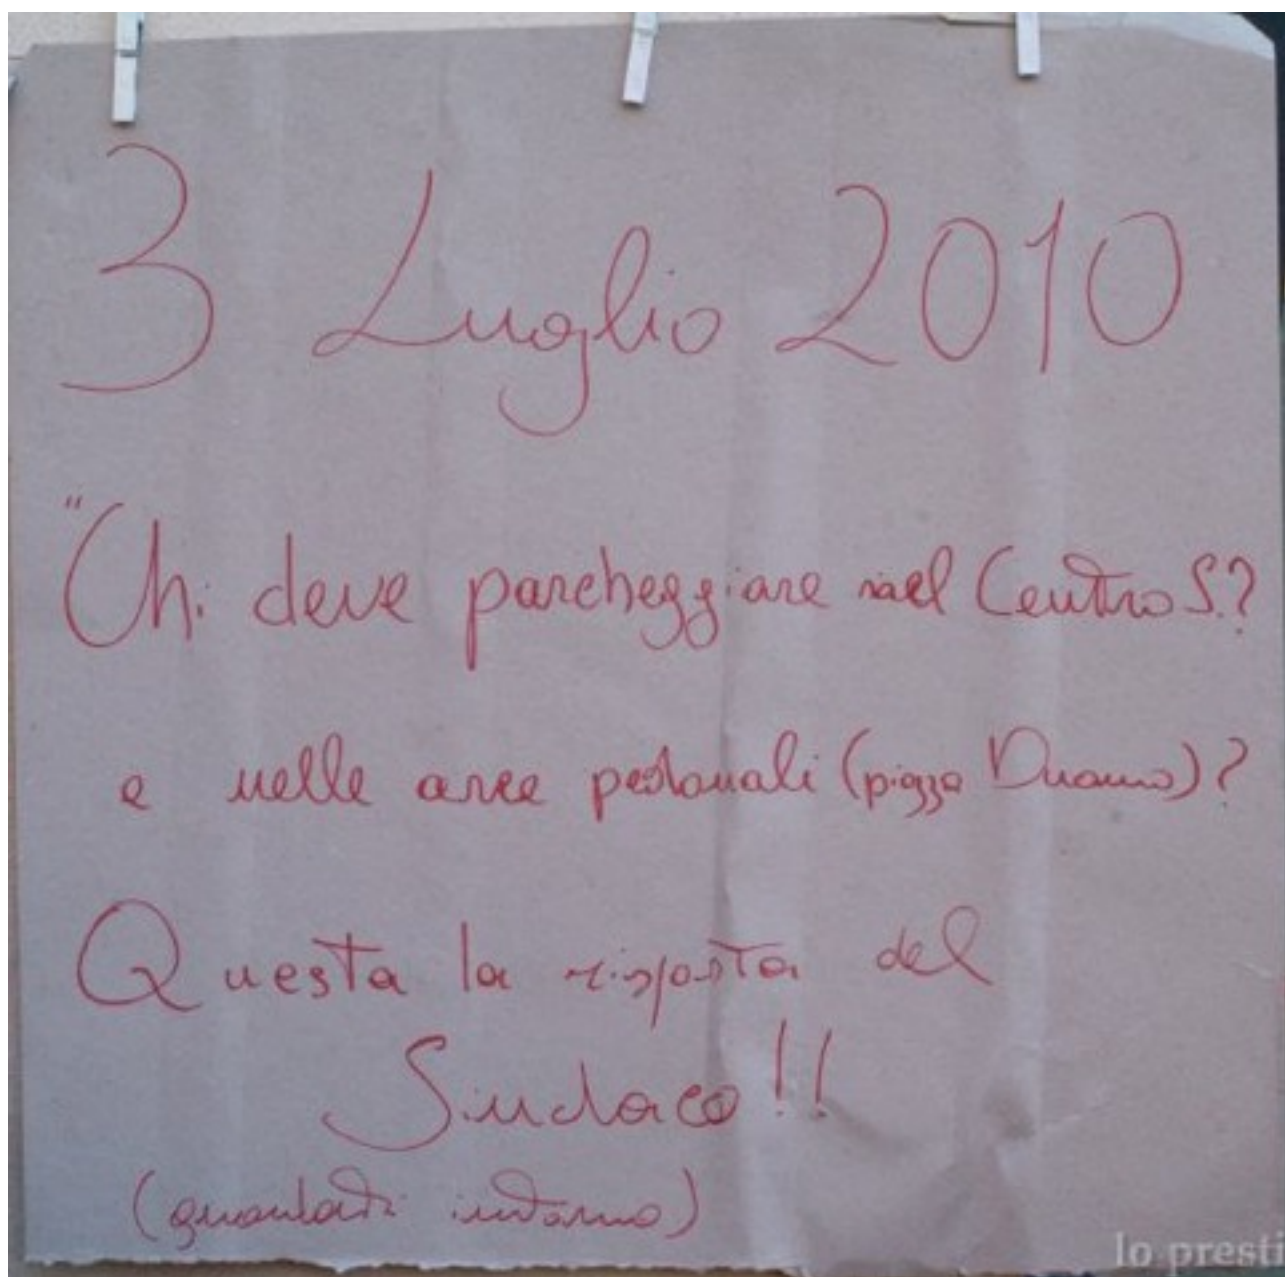 3 Luglio 2010
"Chi deve parcheggiare nel Centro S.?
e nelle aree pedonali (piazza Duomo)?
Questa la risposta del
Sindaco!!
(guardati intorno)
lo presti